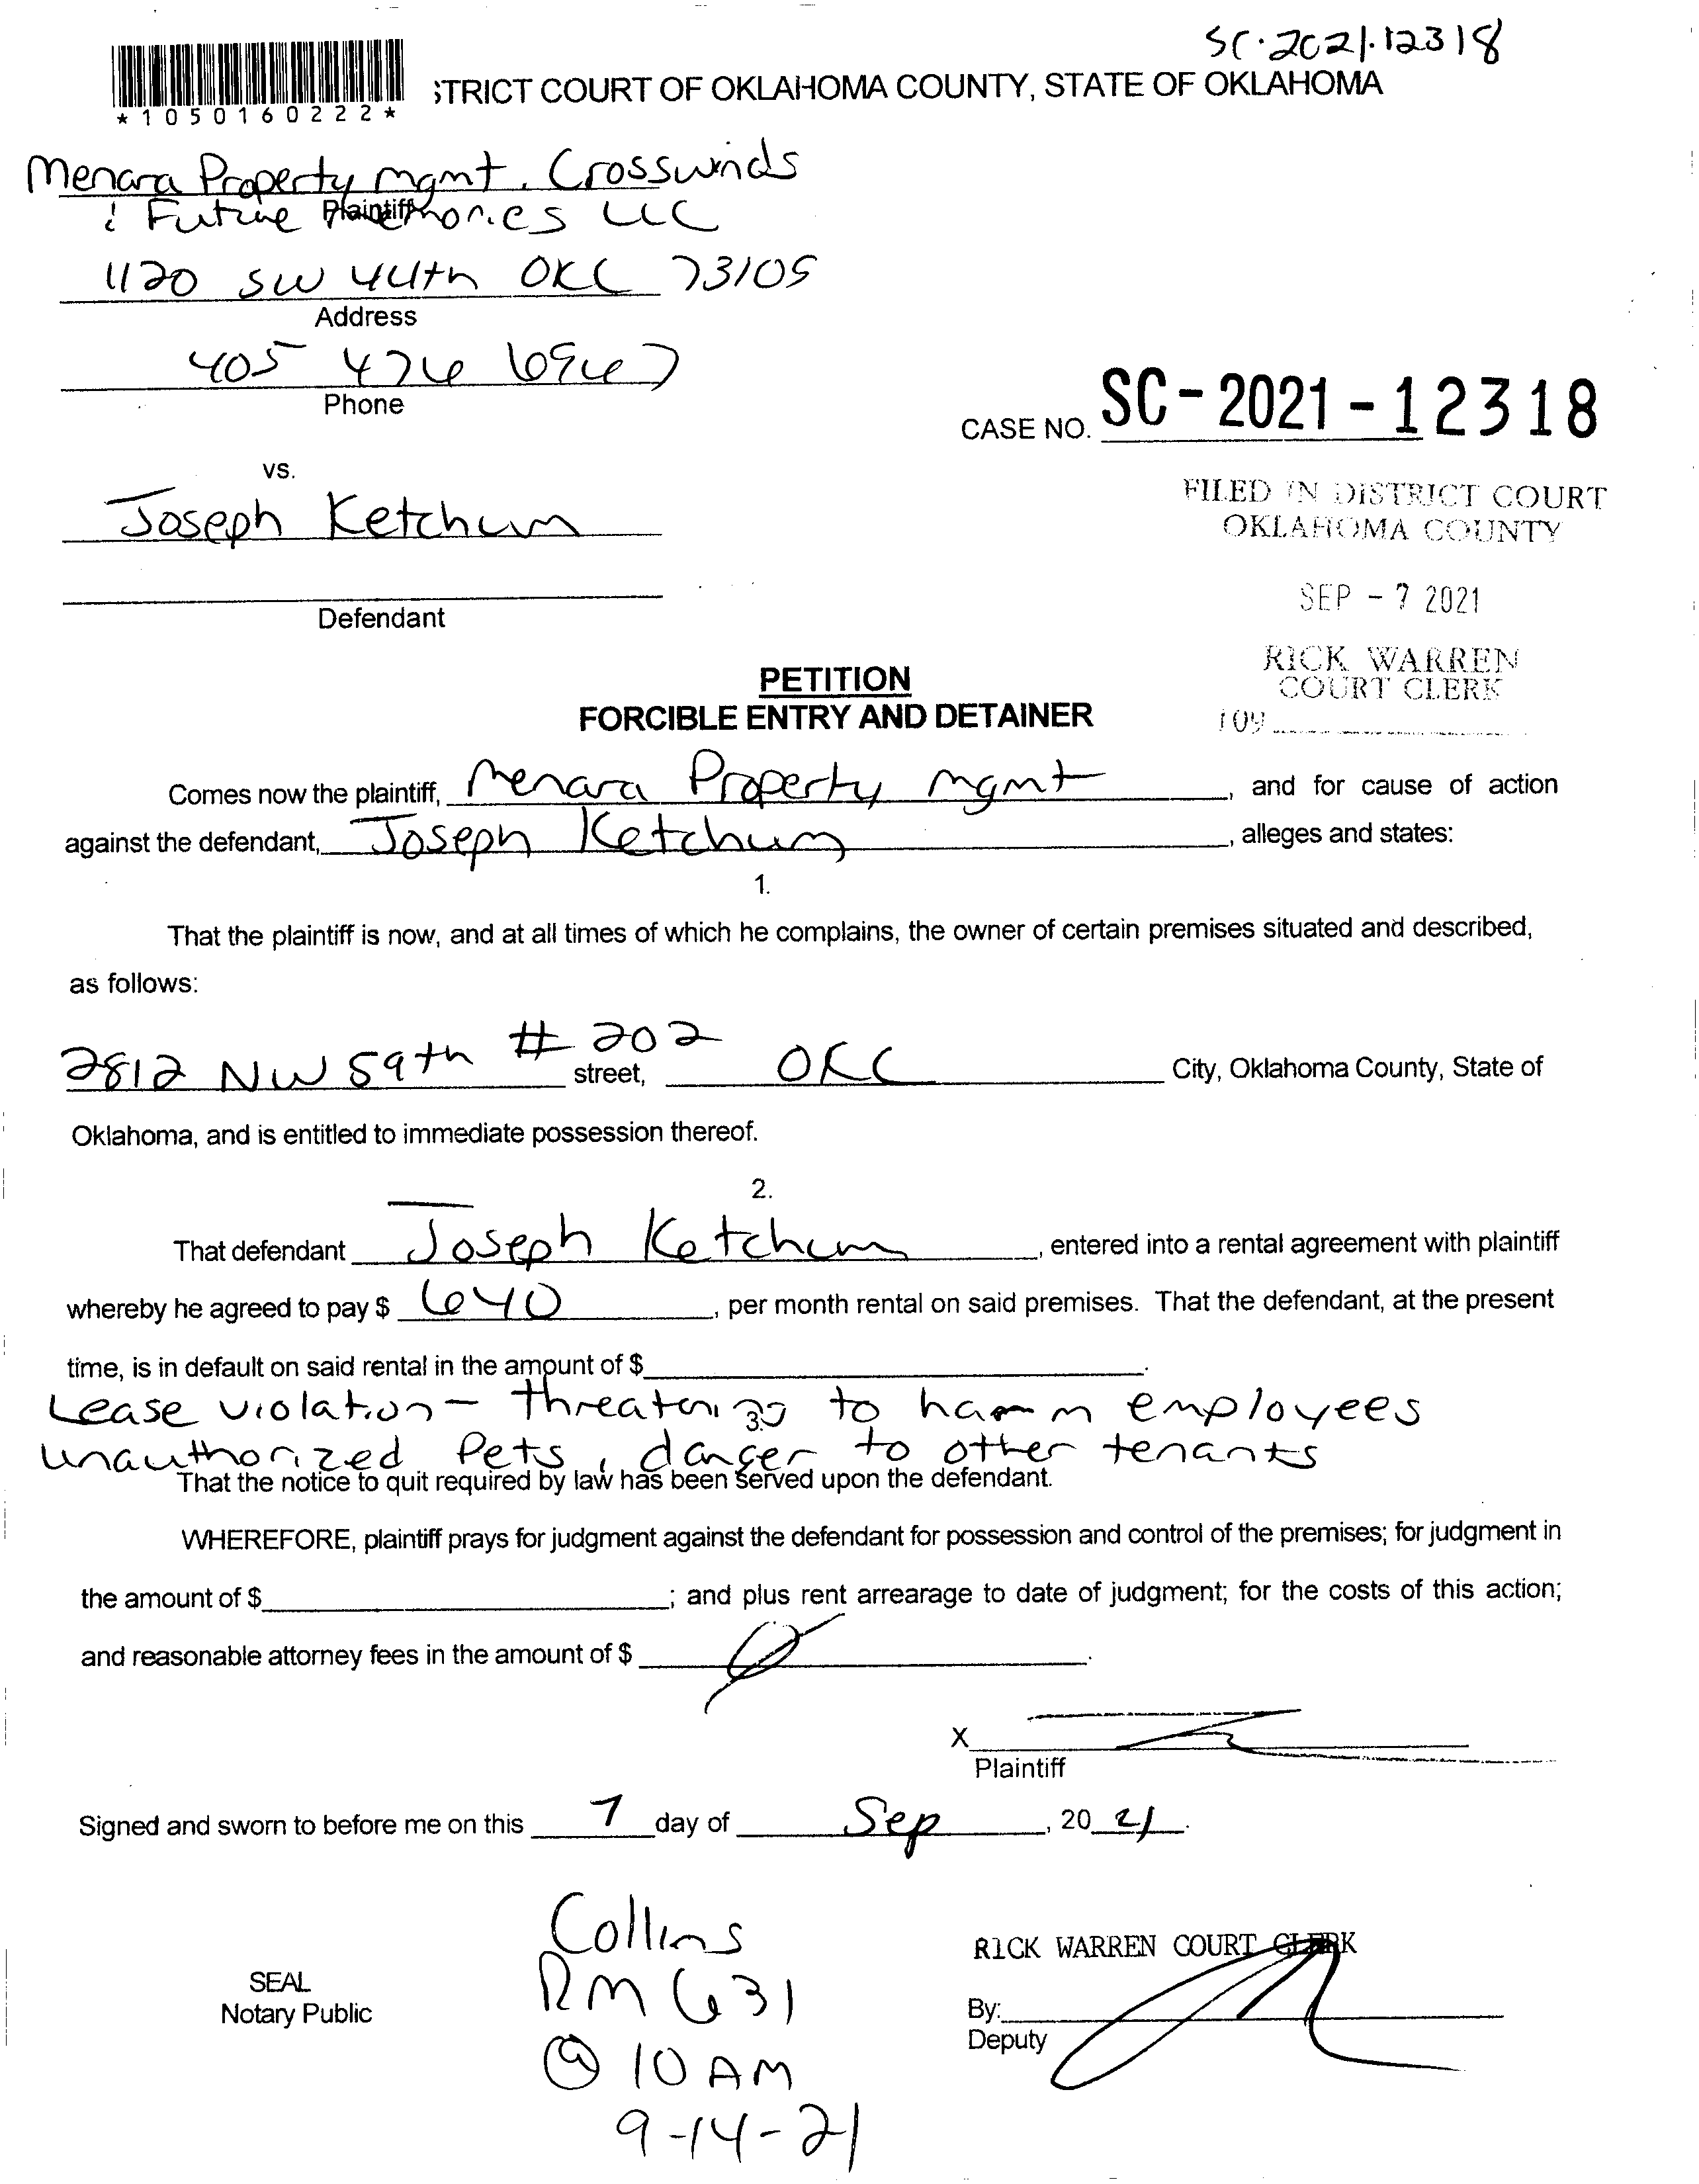 SC.2021.12318
STRICT COURT OF OKLAHOMA COUNTY, STATE OF OKLAHOMA
*1050160222*
Menara Property mgmt. Crosswinds
Plaintiff
& Future Homes LLC
1120 SW 44th OKC 73109
Address
405 476 6967
Phone
CASE NO. SC-2021-12318
vs.
Joseph Ketchum
FILED IN DISTRICT COURT
OKLAHOMA COUNTY
Defendant
SEP - 7 2021
RICK WARREN
COURT CLERK
109
PETITION
FORCIBLE ENTRY AND DETAINER
Comes now the plaintiff, Menara Property mgmt, and for cause of action
against the defendant, Joseph Ketchum, alleges and states:
1.
That the plaintiff is now, and at all times of which he complains, the owner of certain premises situated and described,
as follows:
2812 NW 59th # 202 street, OKC City, Oklahoma County, State of
Oklahoma, and is entitled to immediate possession thereof.
2.
That defendant Joseph Ketchum, entered into a rental agreement with plaintiff
whereby he agreed to pay $ 640, per month rental on said premises. That the defendant, at the present
time, is in default on said rental in the amount of $.
Lease violation - threatening to harm employees
3.
unauthorized Pets, danger to other tenants
That the notice to quit required by law has been served upon the defendant.
WHEREFORE, plaintiff prays for judgment against the defendant for possession and control of the premises; for judgment in
the amount of $; and plus rent arrearage to date of judgment; for the costs of this action;
and reasonable attorney fees in the amount of $ Ø.
X
Plaintiff
Signed and sworn to before me on this 7 day of Sep, 20 21.
Collins
RM 631
@ 10 AM
9-14-21
SEAL
Notary Public
RICK WARREN COURT CLERK
By:
Deputy